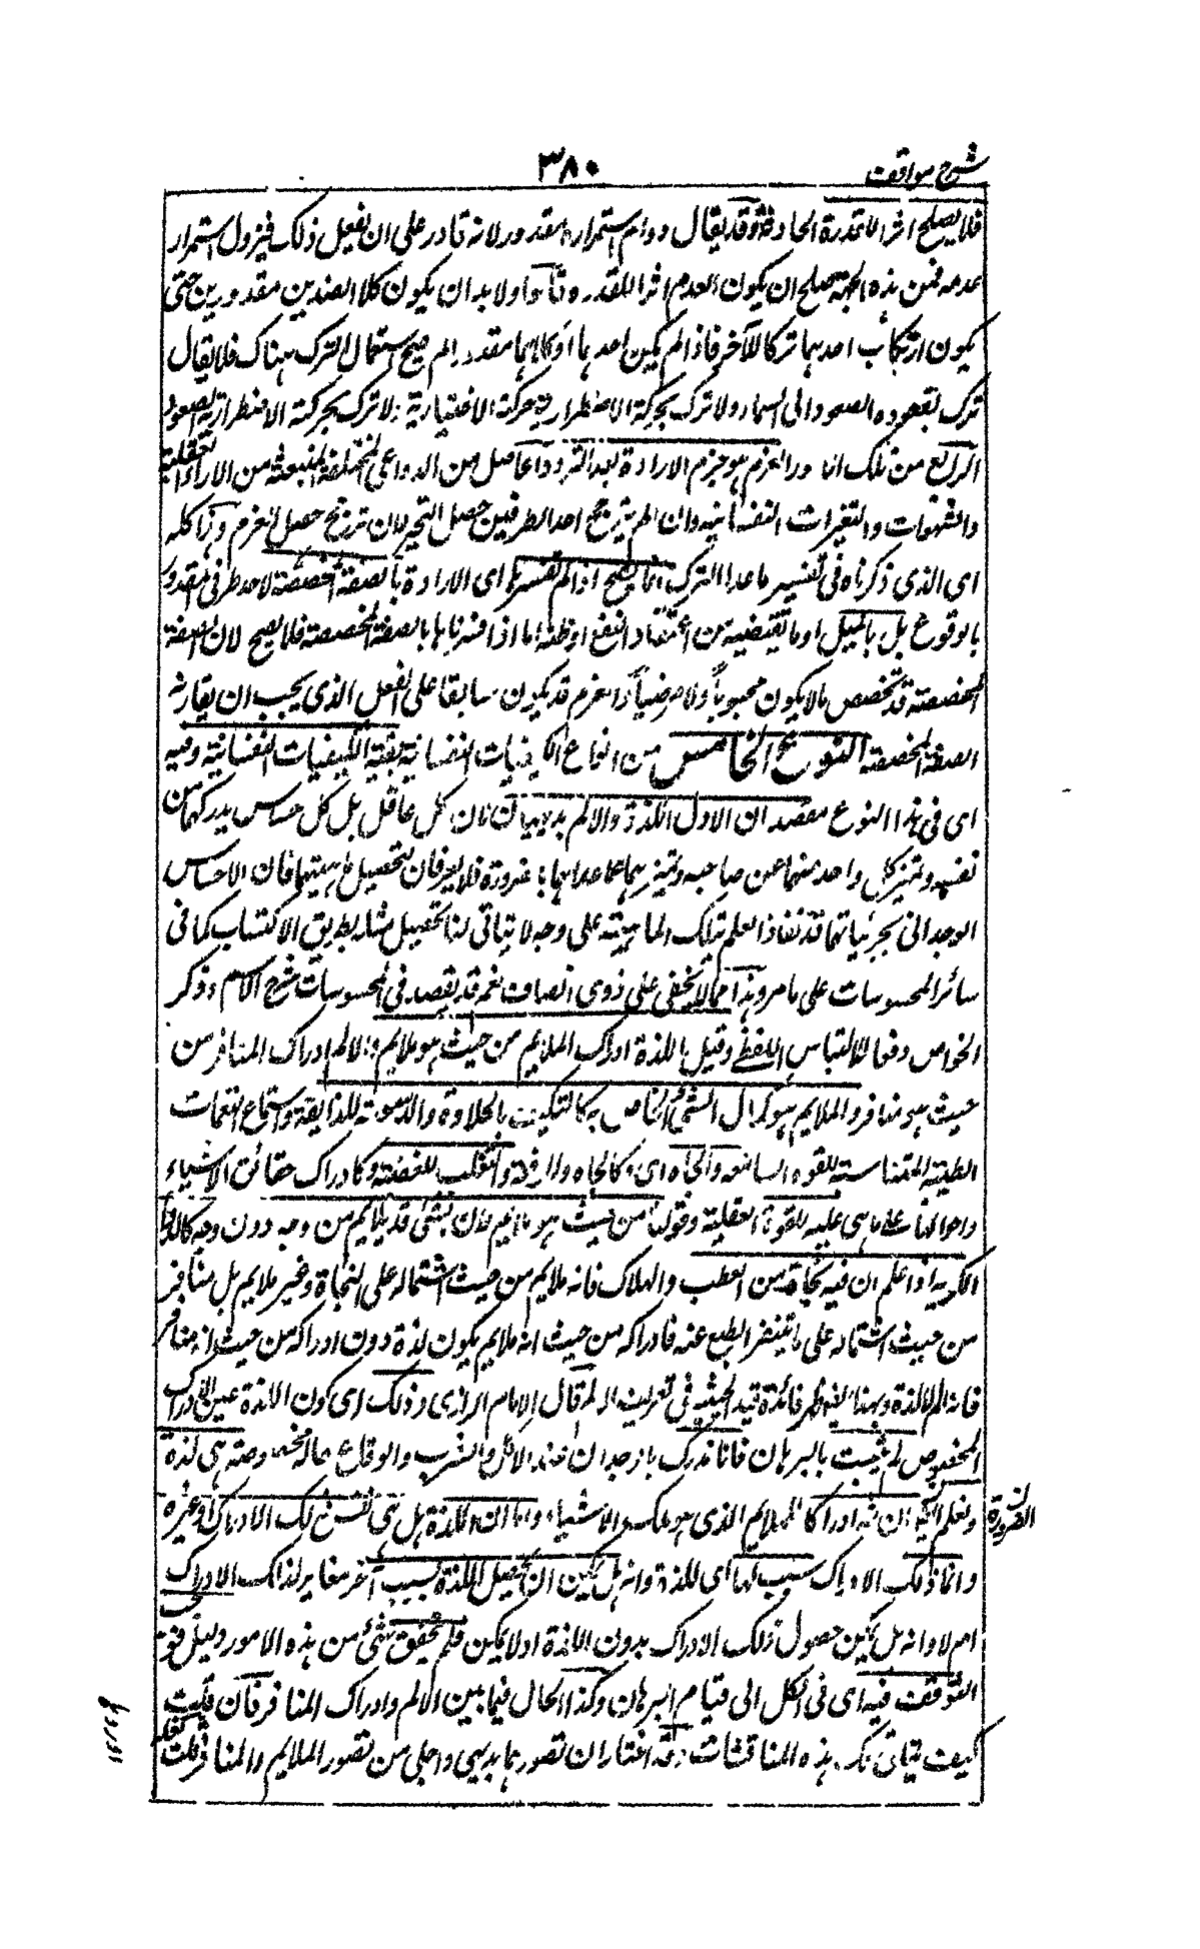 شرح مواقف
٣٨٠
فلا يصلح اثرا للقدرة الحادثة وقد يقال دوام استمراره مقدور لانه قادر على ان يفعل ذلك فيزول استمرار
عدمه فمن هذه الجهة صلح ان يكون العدم اثرا للقدرة وقالوا ولا بد ان يكون كلا الضدين مقدورين حتى
يكون ارتكاب احدهما تركا للآخر فاذا لم يكن احدهما او كلاهما مقدورا لم يصح استعمال الترك هناك فلا يقال
ترك بقعوده الصعود الى السماء ولا ترك بحركته الاضطرارية حركته الاختيارية ولا ترك بحركته الاضطرارية الصعود
الرابع من تلك الامور العزم هو جزم الارادة بعد التردد الحاصل من الدواعى المختلفة المنبعثة من الاراء العقلية
والشهوات والتغيرات النفسانية وان لم يترجح احد الطرفين حصل التحير وان ترجح حصل العزم وهذا كله
اى الذى ذكرناه فى تفسير ما عدا الترك انما يصح اذا لم نفسرها اى الارادة بالصفة المخصصة لاحد طرفى المقدور
بالوقوع بل بالميل او ما يقتضيه من اعتقاد النفع او ظنه اما اذا فسرناها بالصفة المخصصة فلا يصح لان الصفة
المخصصة قد تخصص ما لا يكون محبوبا ولا مرضيا والعزم قد يكون سابقا على الفعل الذى يجب ان يقارنه
الصفة المخصصة النوع الخامس من انواع الكيفيات النفسانية بقية الكيفيات النفسانية وفيه
اى فى هذا النوع مقصدان الاول اللذة والالم بديهيان فان كل عاقل بل كل حساس يدركهما من
نفسه ويميز كل واحد منهما عن صاحبه ويميزهما عما عداهما بالضرورة فلا يعرفان لتحصيل ماهيتهما فان الاحساس
الوجدانى بجزئياتهما قد افاد العلم بتلك الماهية على وجه لا يتاتى لنا تحصيل مثله بطريق الاكتساب كما فى
سائر المحسوسات على ما مر وهذا مما لا يخفى على ذوى انصاف نعم قد يقصد فى المحسوسات شرح الاسم وذكر
الخواص دفعا للالتباس اللفظى وقيل اللذة ادراك الملايم من حيث هو ملايم والالم ادراك المنافر من
حيث هو منافر والملايم هو كمال الشئ الخاص به كالتكيف بالحلاوة والدسومة للذايقة واستماع النغمات
الطيبة المتناسبة للقوة السامعة والجاه اى وكالجاه والرفعة والتغلب للغضبية وكادراك حقائق الاشياء
واحوالها على ما هى عليه للقوة العقلية وقولنا من حيث هو ملايم لان الشئ قد يلايم من وجه دون وجه كالدواء
الكريه اذا علم ان فيه نجاة من العطب والهلاك فانه ملايم من حيث اشتماله على النجاة وغير ملايم بل منافر
من حيث اشتماله على ما يتنفر الطبع عنه فادراكه من حيث انه ملايم يكون لذة دون ادراكه من حيث انه منافر
فانه الم لا لذة وبهذا ايضا ظهر فائدة قيد الحيثية فى تعريف الالم قال الامام الرازى وذلك اى كون اللذة عين الادراك
المخصوص لم يثبت بالبرهان فانا ندرك بالوجدان عند الاكل والشرب والوقاع حالة مخصوصة هى لذة
ونعلم ايضا ان ثمه ادراكا للملايم الذى هو تلك الاشياء واما ان اللذة هل هى نفس ذلك الادراك او غيره
الضرورة
وانما ذلك الادراك سبب لها اى للذة وانه هل يمكن ان تحصل اللذة بسبب آخر مغاير لذلك الادراك
ام لا وانه هل يمكن حصول ذلك الادراك بدون اللذة او لا يمكن فلم يتحقق شئ من هذه الامور وجب
التوقف فيه اى فى الكل الى قيام البرهان وكذا الحال فيما بين الالم وادراك المنافر فان قلت
كيف يتاتى لكم هذه المناقشات وقد اختار ان تصورهما بديهى واجلى من تصور الملايم والمنافر قلت